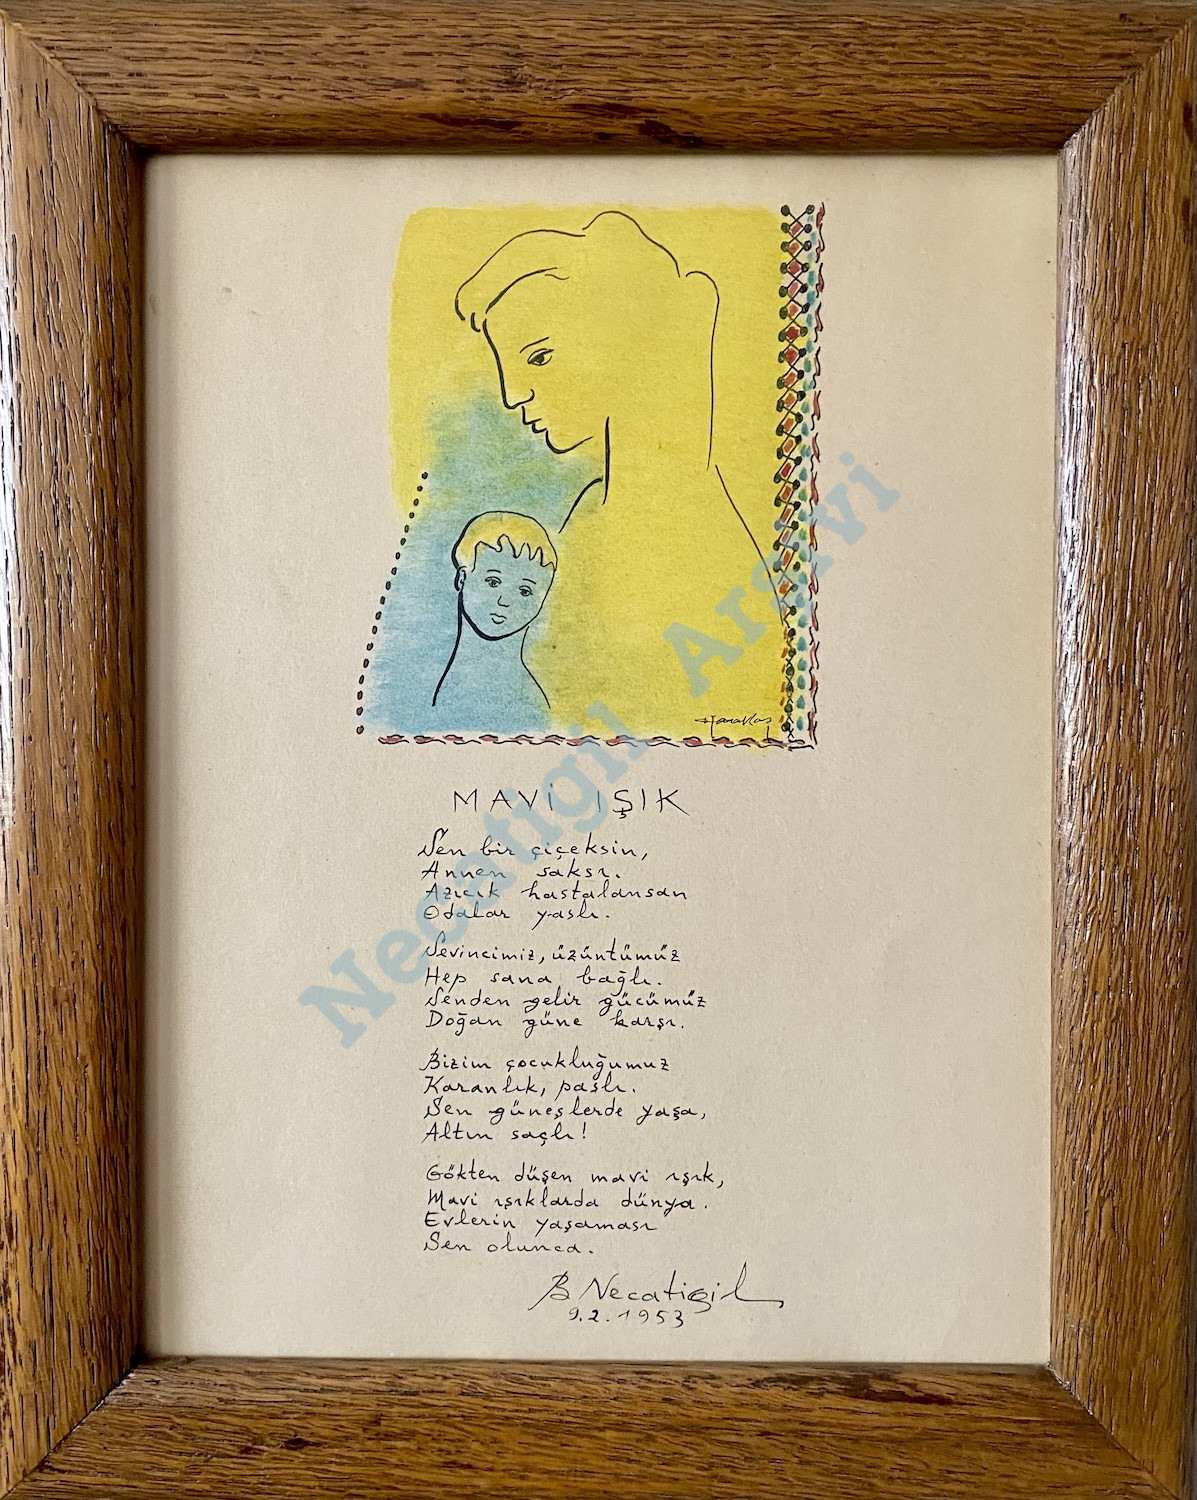 Karakaş
MAVİ IŞIK
Sen bir çiçeksin,
Annen saksı.
Azıcık hastalansan
Odalar yaslı.
Sevincimiz, üzüntümüz
Hep sana bağlı.
Senden gelir gücümüz
Doğan güne karşı.
Bizim çocukluğumuz
Karanlık, paslı.
Sen güneşlerde yaşa,
Altın saçlı!
Gökten düşen mavi ışık,
Mavi ışıklarda dünya.
Evlerin yaşaması
Sen olunca.
B Necatigil
9.2.1953
Necatigil Arşivi